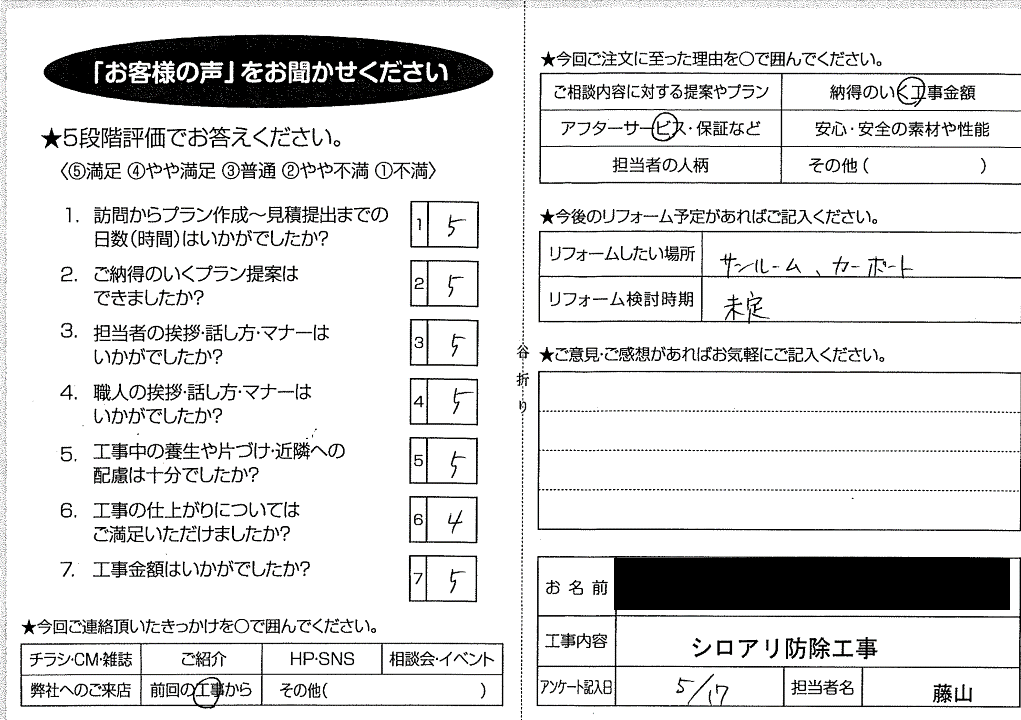 「お客様の声」をお聞かせください
★5段階評価でお答えください。
〈⑤満足 ④やや満足 ③普通 ②やや不満 ①不満〉
1. 訪問からプラン作成～見積提出までの
日数(時間)はいかがでしたか?
1 5
2. ご納得のいくプラン提案は
できましたか?
2 5
3. 担当者の挨拶・話し方・マナーは
いかがでしたか?
3 5
4. 職人の挨拶・話し方・マナーは
いかがでしたか?
4 5
5. 工事中の養生や片づけ・近隣への
配慮は十分でしたか?
5 5
6. 工事の仕上がりについては
ご満足いただけましたか?
6 4
7. 工事金額はいかがでしたか?
7 5
★今回ご連絡頂いたきっかけを○で囲んでください。
チラシ・CM・雑誌 ご紹介 HP・SNS 相談会・イベント
弊社へのご来店 前回の工事から その他( )
谷折り
★今回ご注文に至った理由を○で囲んでください。
ご相談内容に対する提案やプラン 納得のいく工事金額
アフターサービス・保証など 安心・安全の素材や性能
担当者の人柄 その他( )
★今後のリフォーム予定があればご記入ください。
リフォームしたい場所 サンルーム、カーポート
リフォーム検討時期 未定
★ご意見・ご感想があればお気軽にご記入ください。
お名前
工事内容 シロアリ防除工事
アンケート記入日 5/17 担当者名 藤山